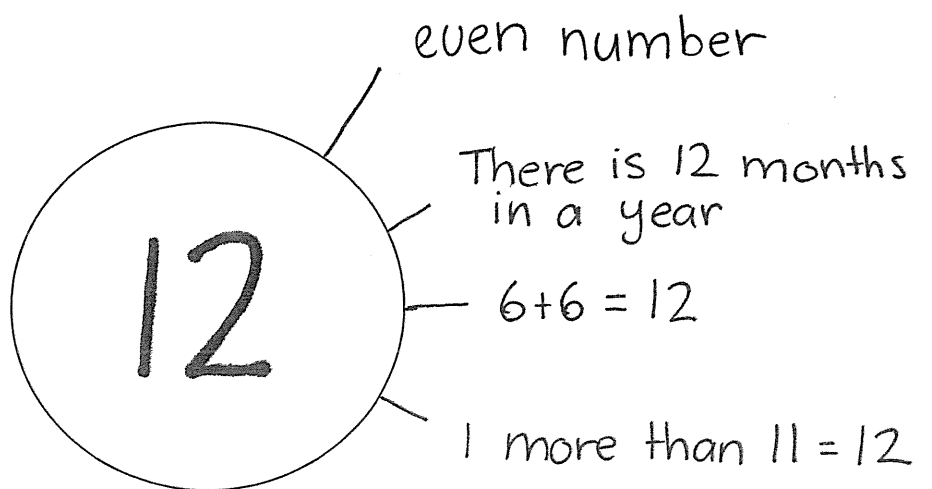 even number
There is 12 months
in a year
12
6+6 = 12
1 more than 11 = 12